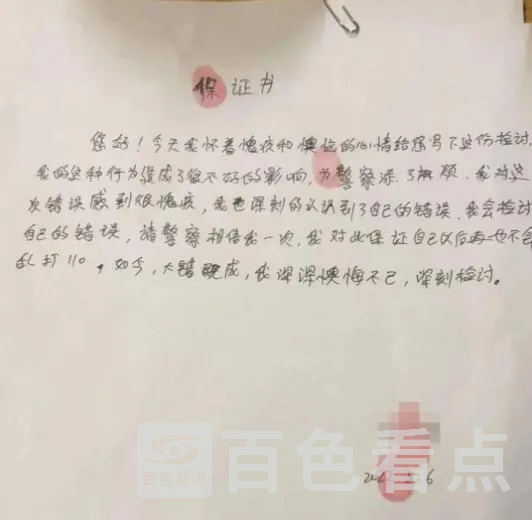 保证书
您好！今天我怀着愧疚和懊悔的心情给您写下这份检讨,
我的这种行为造成了很不好的影响,为警察添了麻烦,我对这
次错误感到很愧疚,我也深刻的认识到了自己的错误,我会检讨
自己的错误,请警察相信我一次,我对此保证自己以后再也不会
乱打110。如今,大错既成,我深深懊悔不已,深刻检讨。
百色看点
百色看点